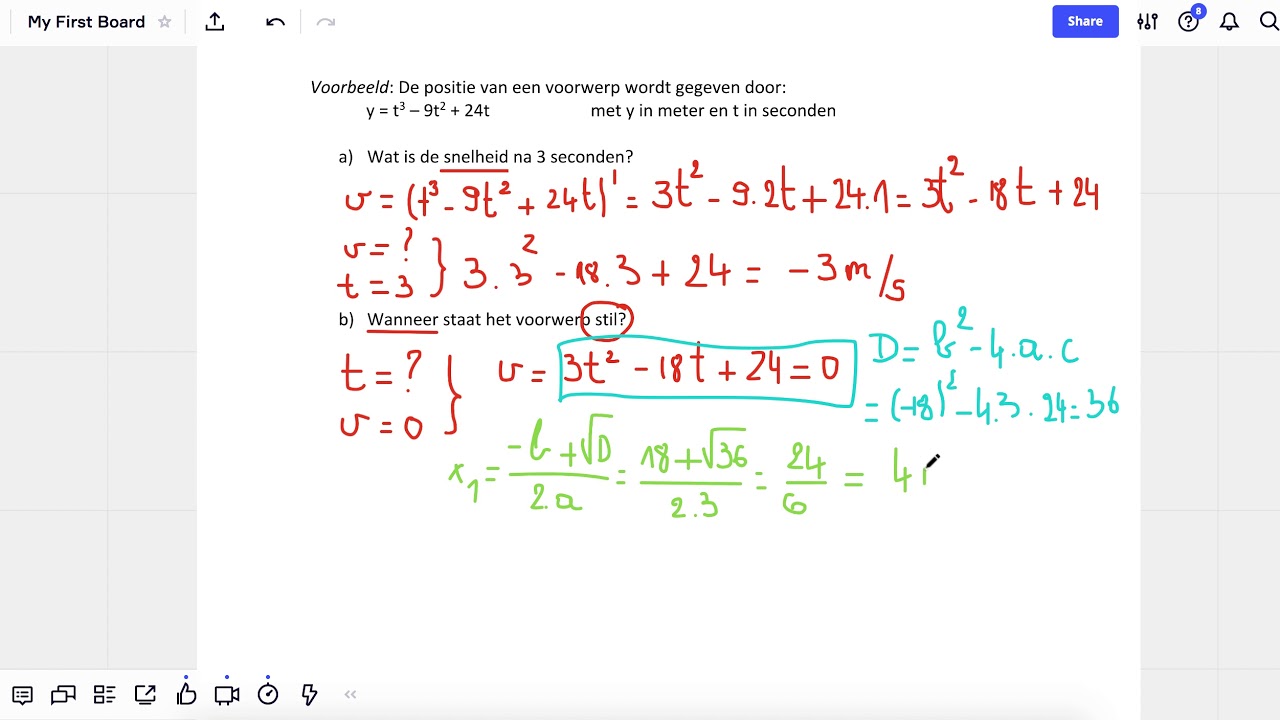 My First Board
Share
8
Voorbeeld: De positie van een voorwerp wordt gegeven door:
y = t³ – 9t² + 24t met y in meter en t in seconden
a) Wat is de snelheid na 3 seconden?
v = (t³ - 9t² + 24t)' = 3t² - 9.2t + 24.1 = 3t² - 18t + 24
v = ?
t = 3 } 3.3² - 18.3 + 24 = -3 m/s
b) Wanneer staat het voorwerp stil?
t = ?
v = 0 } v = 3t² - 18t + 24 = 0
D = b² - 4.a.c
= (-18)² - 4.3.24 = 36
x₁ = (-b + √D)/(2.a) = (18 + √36)/(2.3) = 24/6 = 4